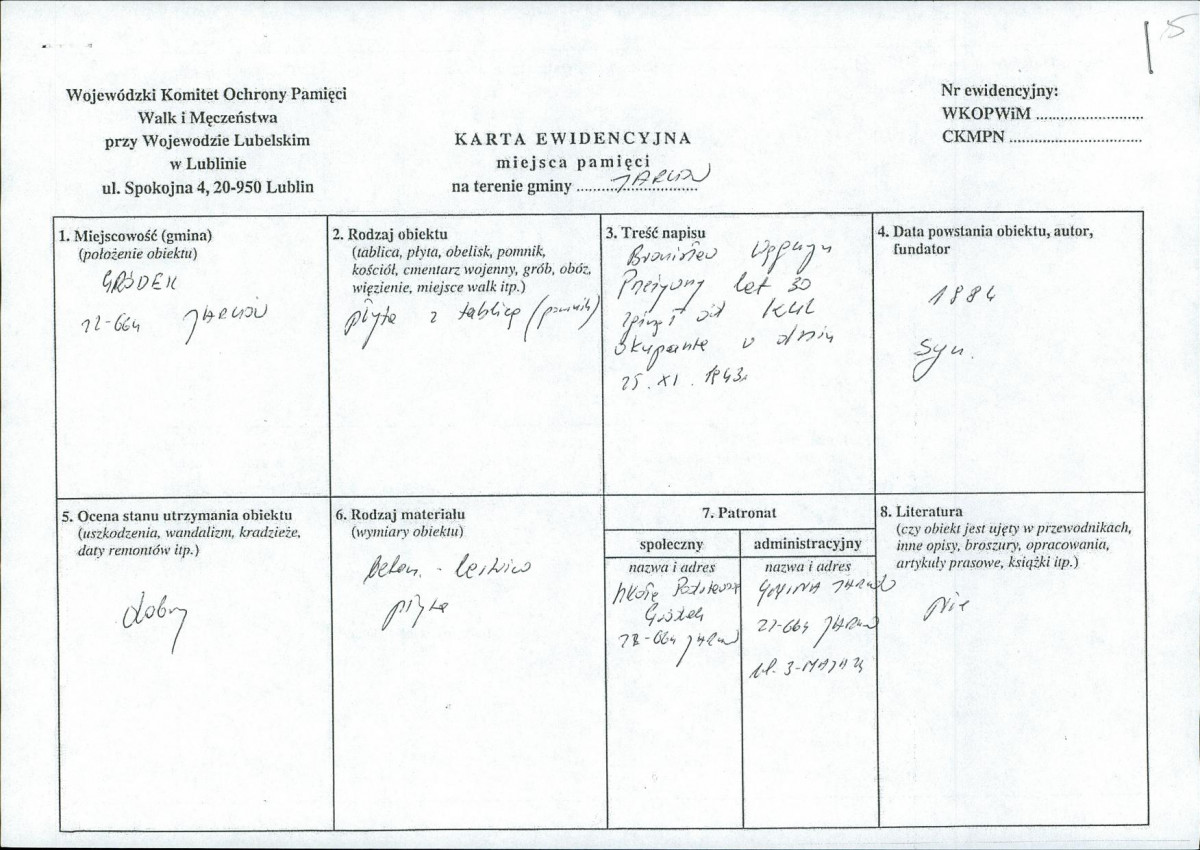 5
Wojewódzki Komitet Ochrony Pamięci
Walk i Męczeństwa
przy Wojewodzie Lubelskim
w Lublinie
ul. Spokojna 4, 20-950 Lublin
KARTA EWIDENCYJNA
miejsca pamięci
na terenie gminy JARCZÓW
Nr ewidencyjny:
WKOPWiM ..........................
CKMPN ................................
1. Miejscowość (gmina)
(położenie obiektu)
GRÓDEK
22-664 JARCZÓW
2. Rodzaj obiektu
(tablica, płyta, obelisk, pomnik,
kościół, cmentarz wojenny, grób, obóz,
więzienie, miejsce walk itp.)
płyta z tablicą (pomnik)
3. Treść napisu
Bronisław
Przeżywszy lat 30
zginął od kul
okupanta w dniu
25. XI. 1943r.
4. Data powstania obiektu, autor,
fundator
1984
Syn.
5. Ocena stanu utrzymania obiektu
(uszkodzenia, wandalizm, kradzieże,
daty remontów itp.)
dobry
6. Rodzaj materiału
(wymiary obiektu)
beton. - lastrico
płyta
7. Patronat
społeczny
nazwa i adres
Szkoła Podstawowa
Gródek
22-664 Jarczów
administracyjny
nazwa i adres
GMINA JARCZÓW
22-664 JARCZÓW
ul. 3-MAJA
8. Literatura
(czy obiekt jest ujęty w przewodnikach,
inne opisy, broszury, opracowania,
artykuły prasowe, książki itp.)
Nie